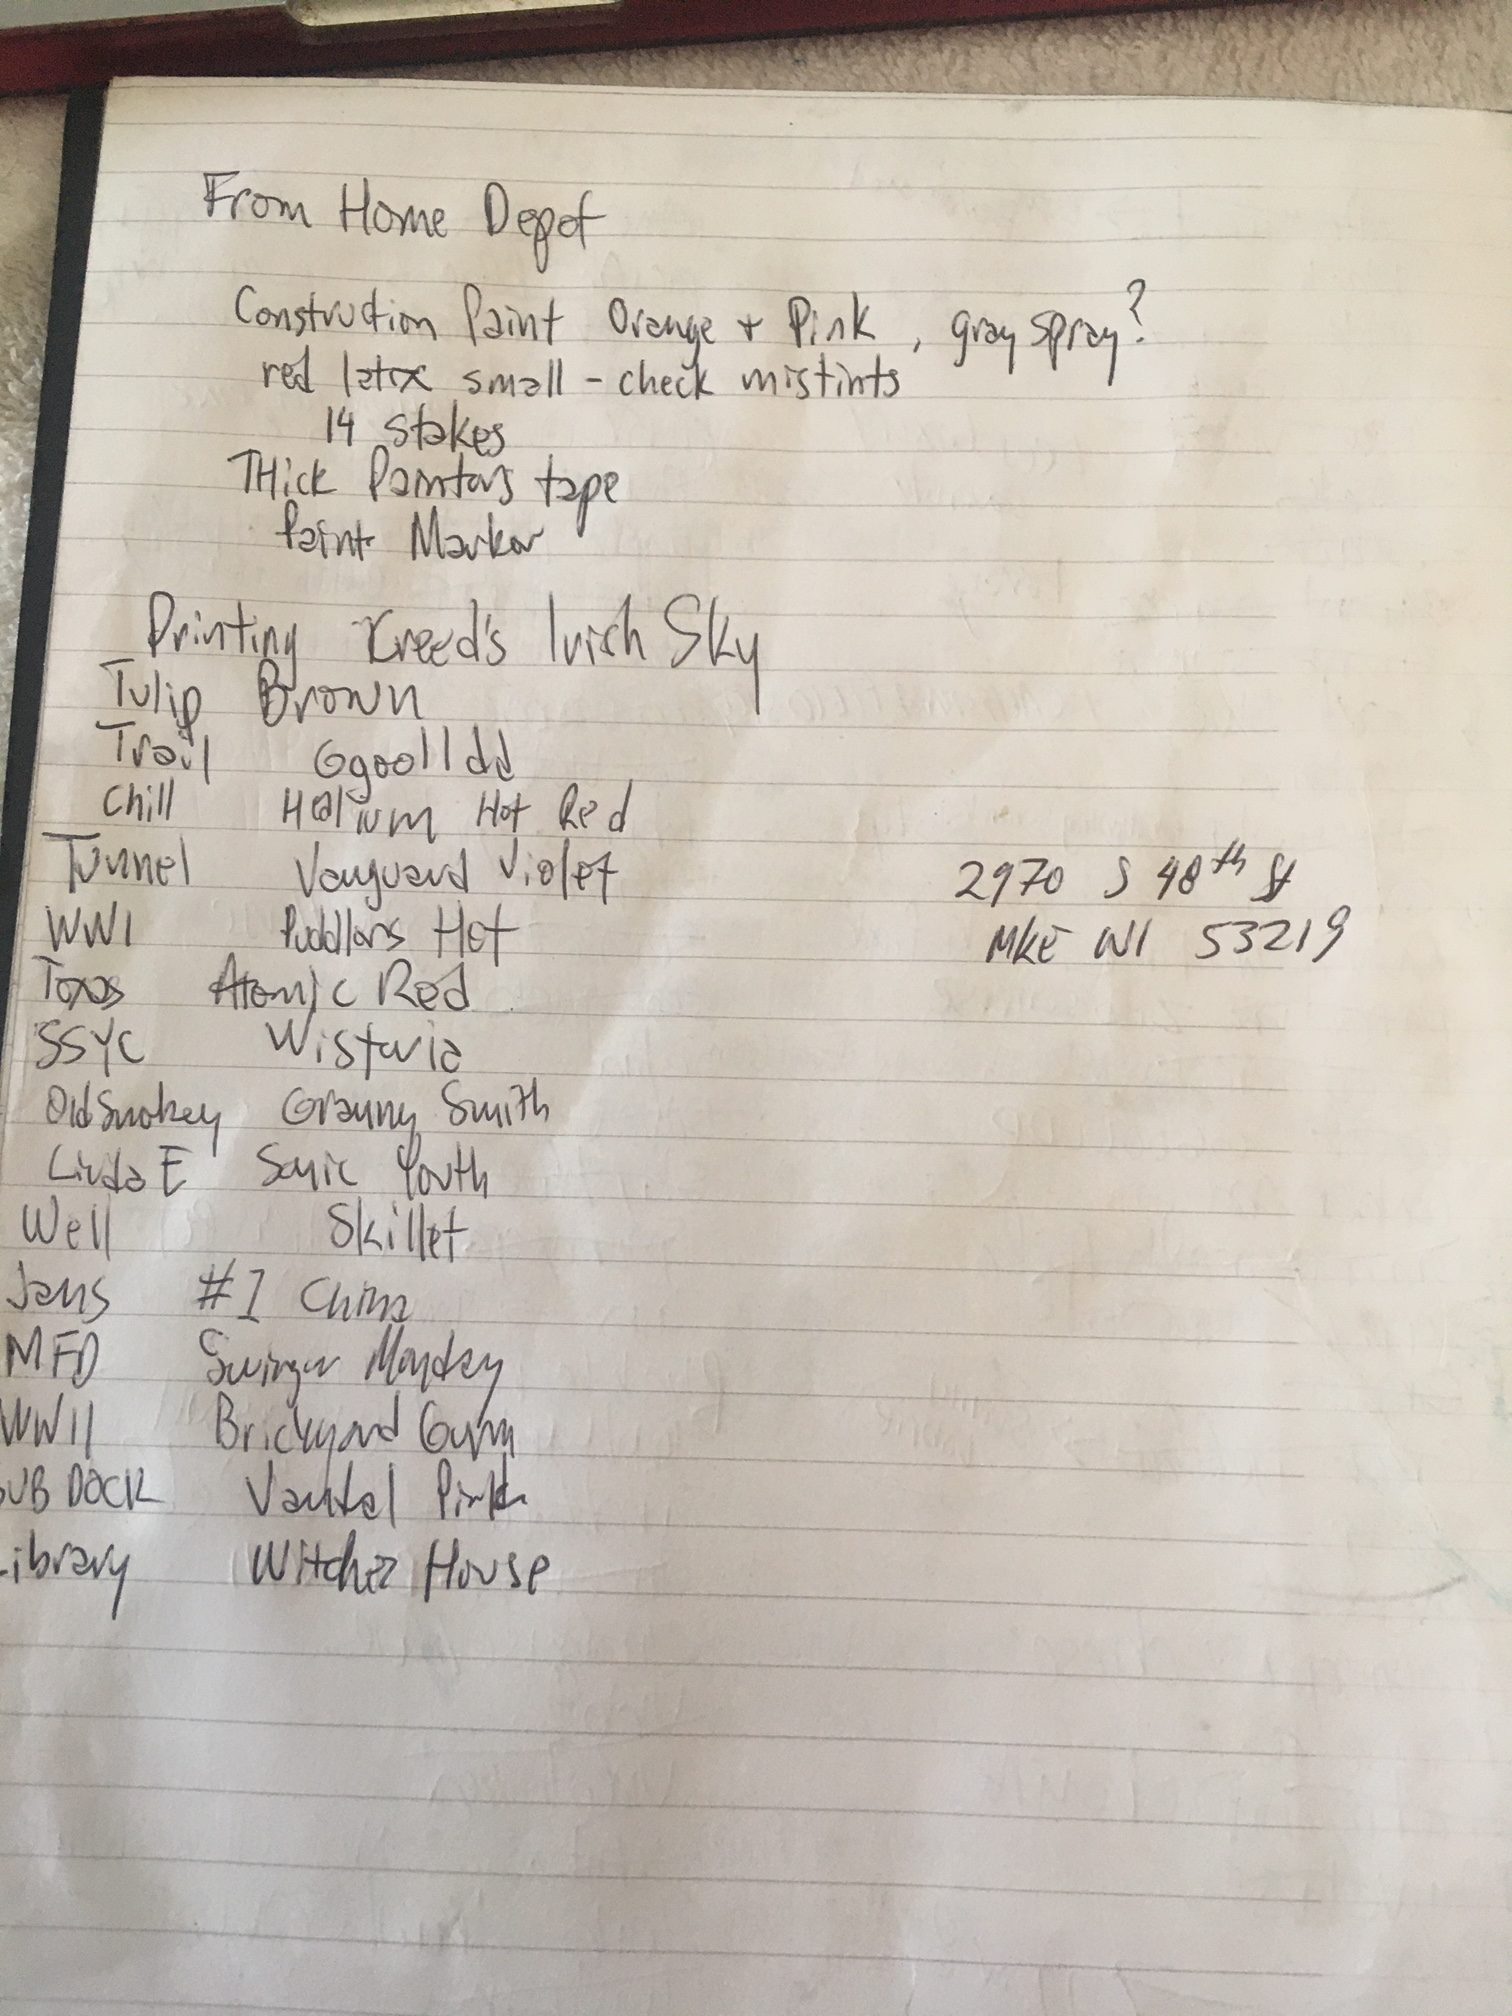 From Home Depot
Construction Paint Orange + Pink, gray spray?
red latex small - check mistints
14 stakes
THick Painters tape
Paint Marker
Printing Kreed's Irish Sky
Tulip Brown
Trail Ggoolldd
Chill Helium Hot Red
Tunnel Vanguard Violet
WWI Puddlers Hot
Texas Atomic Red
SSYC Wisteria
Old Smokey Granny Smith
Linda E Sonic Youth
Well Skillet
Jans #1 China
MFD Swinger
WWII Brickyard Gum
SUB DOCK Pink
Library House
2970 S 48th St
MKE WI 53219